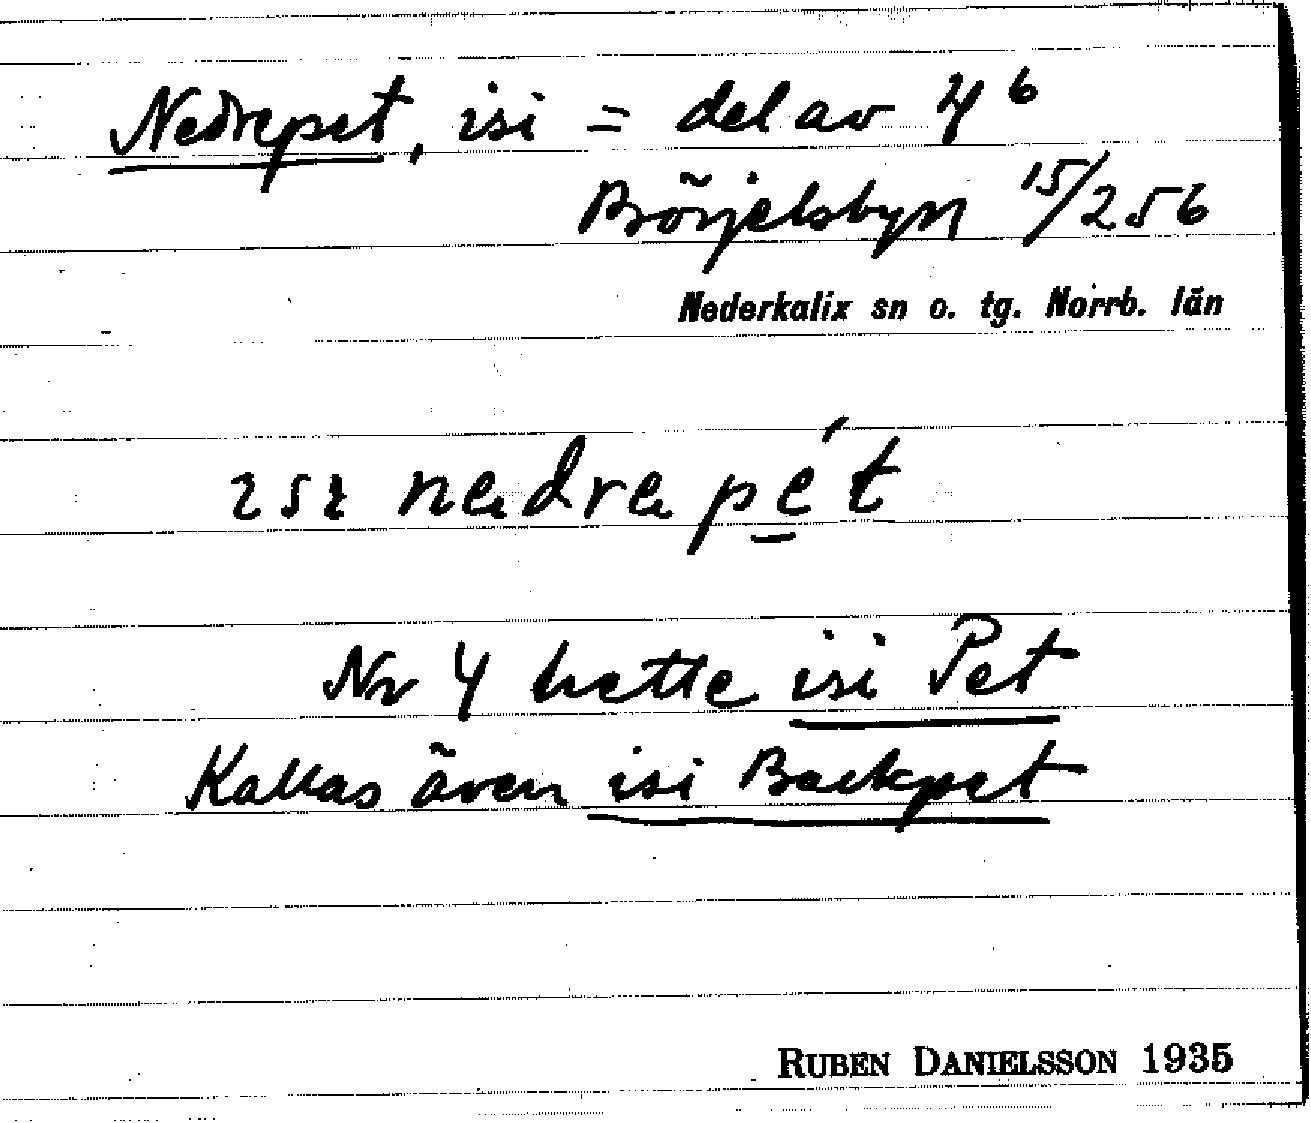 Nedrepet, isi = del av 4⁶
Börjelsbyn 15/256
Nederkalix sn o. tg. Norrb. län
ısı nedrepe̲´t
Nr 4 hette isi Pet
Kallas även isi Backpet
RUBEN DANIELSSON 1935